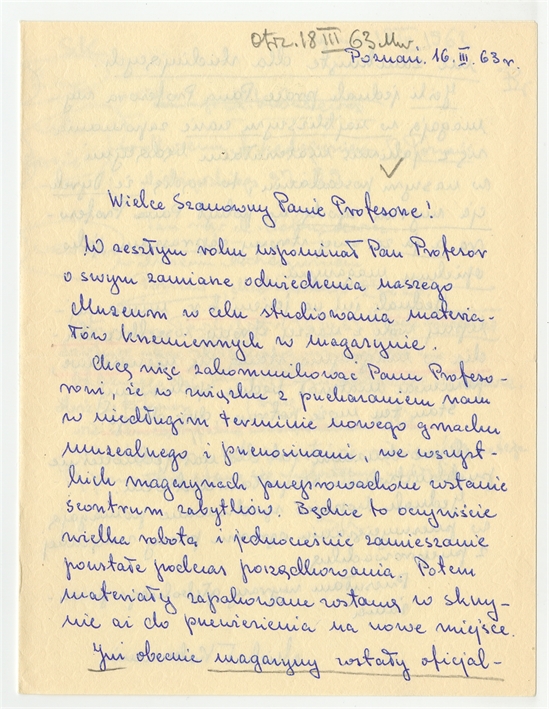 otrz. 18 III 63 Mw.
Poznań. 16. III. 63 r.
Wielce Szanowny Panie Profesorze!
W zeszłym roku wspominał Pan Profesor
o swym zamiarze odwiedzenia naszego
Muzeum w celu studiowania materia-
łów krzemiennych w magazynie.
Chcę więc zakomunikować Panu Profeso-
rowi, że w związku z przekazaniem nam
w niedługim terminie nowego gmachu
muzealnego i przenosinami, we wszyst-
kich magazynach przeprowadzone zostanie
scontrum zabytków. Będzie to oczywiście
wielka robota i jednocześnie zamieszanie
powstałe podczas porządkowania. Potem
materiały zapakowane zostaną w skrzy-
nie aż do przewiezienia na nowe miejsce.
Już obecnie magazyny zostały oficjal-